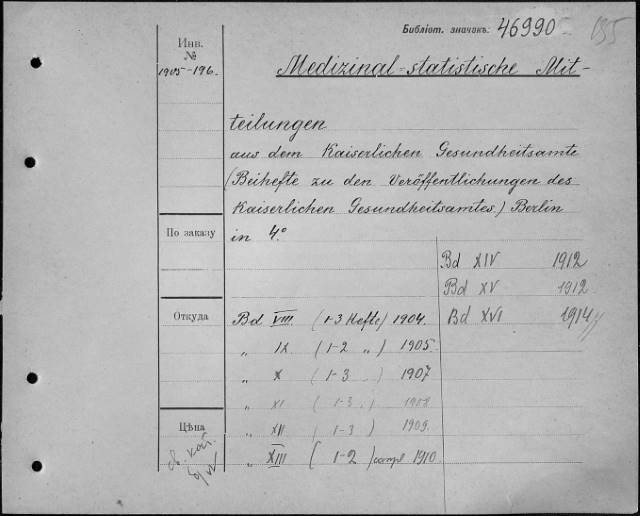 Библіот. значокъ: 46990 155
Инв.
№
1905-196.
Medizinal-statistische Mit-
teilungen
aus dem Kaiserlichen Gesundheitsamte
(Beihefte zu den Veröffentlichungen des
Kaiserlichen Gesundheitsamtes.) Berlin
in 4°
По заказу
Bd XIV 1912
Bd XV 1912
Bd XVI 1914
Откуда
Bd VIII (1-3 Hefte) 1904.
„ IX (1-2 „) 1905.
„ X (1-3 „) 1907
„ XI (1-3 „) 1908
„ XII (1-3) 1909.
„ XIII (1-2) compl 1910.
Цѣна